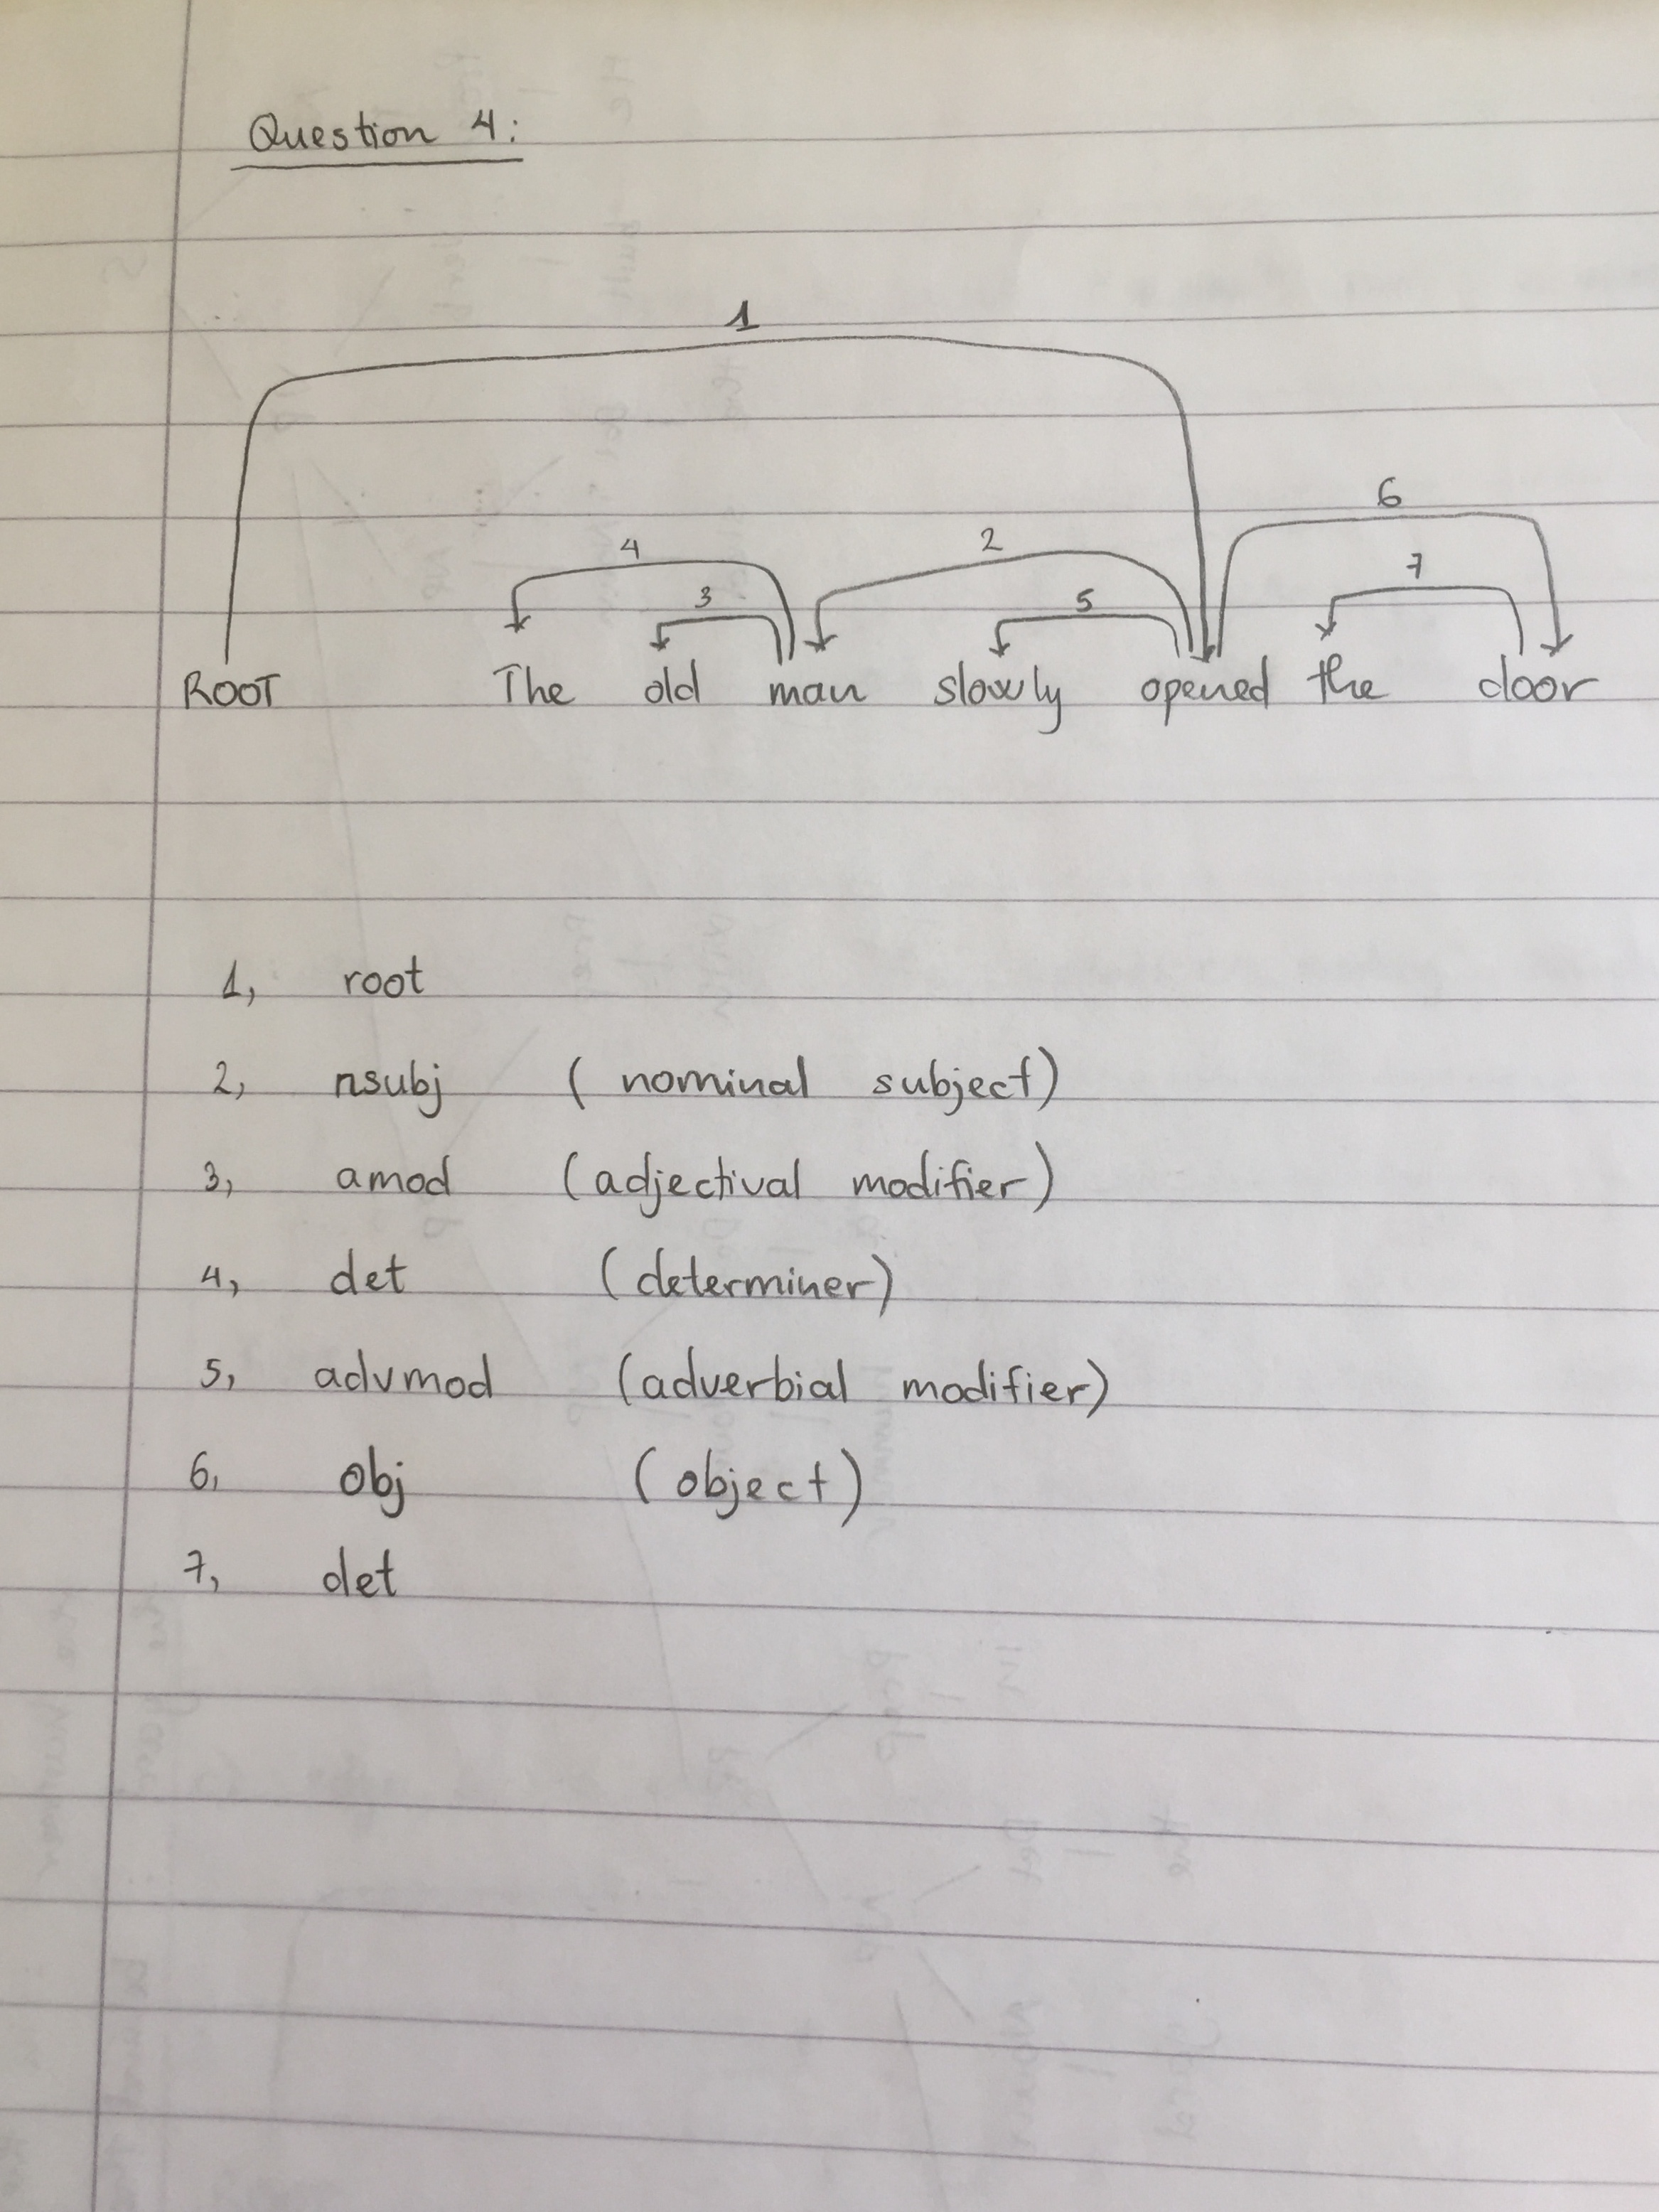 Question 4:
1
6
4 2 7
3 5
ROOT The old man slowly opened the door
1, root
2, nsubj (nominal subject)
3, amod (adjectival modifier)
4, det (determiner)
5, advmod (adverbial modifier)
6, obj (object)
7, det